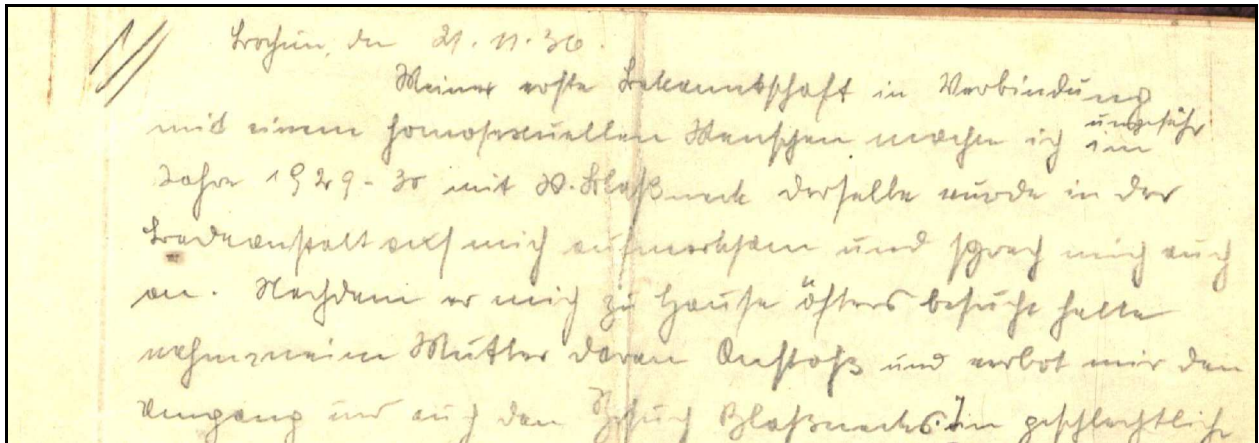 Bochum, den 21.11.36.
Meine erste Bekanntschaft in Verbindung
mit einem homosexuellen Menschen machte ich ungefähr im
Jahre 1929-30 mit W. Blaßneck derselbe wurde in der
Badeanstalt auf mich aufmerksam und sprach mich auch
an. Nachdem er mich zu Hause öfters besucht hatte
nahm meine Mutter daran Anstoß und verbot mir den
Umgang und auch den Besuch Blaßnecks. In geschlechtliche